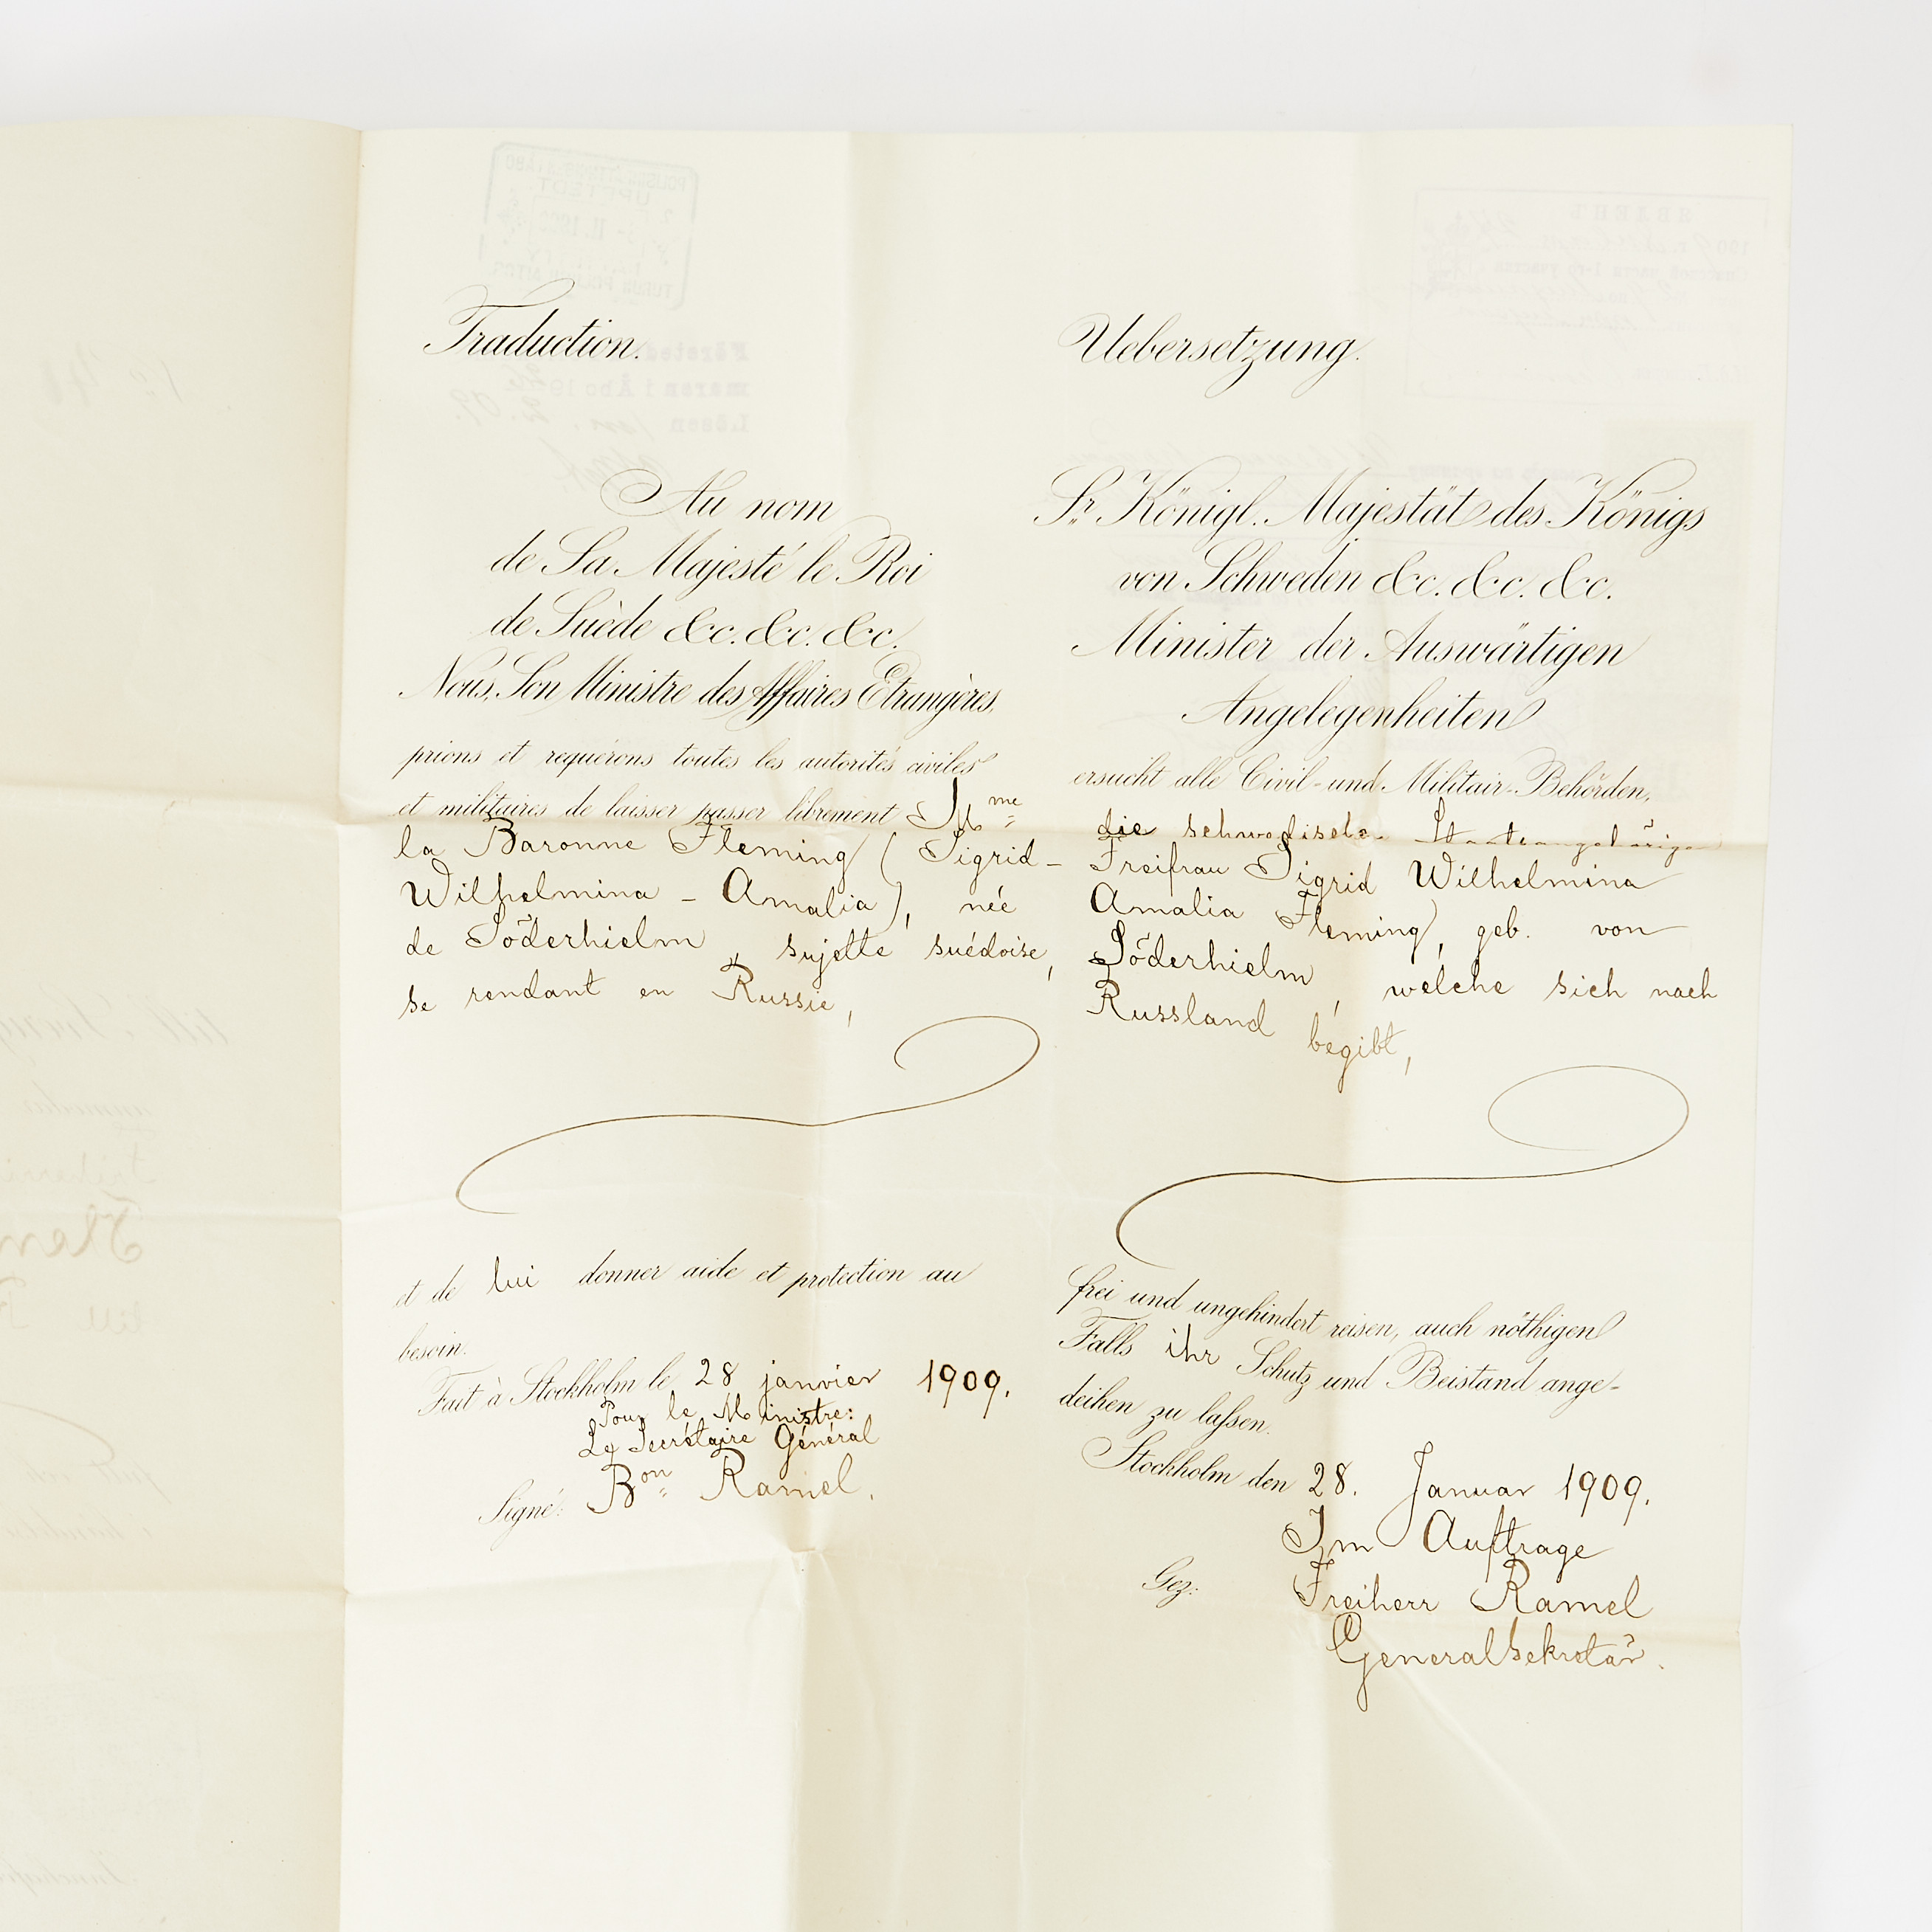 Traduction.
Au nom
de Sa Majesté le Roi
de Suède &c. &c. &c.
Nous, Son Ministre des Affaires Etrangères,
prions et requérons toutes les autorités civiles
et militaires de laisser passer librement Mme
la Baronne Fleming (Sigrid-
Wilhelmina - Amalia), née
de Söderhielm, sujette suédoise,
se rendant en Russie,
et de lui donner aide et protection au
besoin.
Fait à Stockholm le 28 janvier 1909.
Pour le Ministre:
Le Secrétaire Général
Signé: Bon Ramel.
Uebersetzung.
Sr. Königl. Majestät des Königs
von Schweden &c. &c. &c.
Minister der Auswärtigen
Angelegenheiten
ersucht alle Civil- und Militair-Behörden,
die schwedische Staatsangehörige
Freifrau Sigrid Wilhelmina
Amalia Fleming, geb. von
Söderhielm, welche sich nach
Russland begibt,
frei und ungehindert reisen, auch nöthigen
Falls ihr Schutz und Beistand ange-
deihen zu laßen.
Stockholm den 28. Januar 1909.
Im Auftrage
Gez: Freiherr Ramel
Generalsekretär.